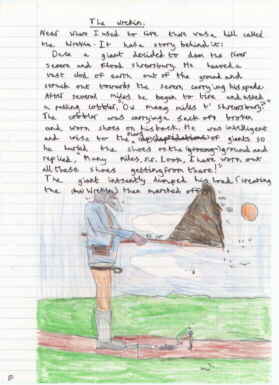 The Wrekin.
Near where I used to live there was a hill called
the Wrekin. It has a story behind it:
Once a giant decided to dam the River
Severn and flood Shrewsbury. He heaved a
vast clod of earth out of the ground and
struck out towards the Severn, carrying his spade.
After several miles, he began to tire and asked
a passing cobbler, "How many miles to Shrewsbury?"
The cobbler was carrying a sack of broken
and worn shoes on his back. He was intelligent
and wise to the of giants so
he hurled the shoes to the ground and
replied, "Many miles, sir. Look, I have worn out
all these shoes getting from there!"
The giant instantly dumped his load (creating
the Wrekin) then marched off